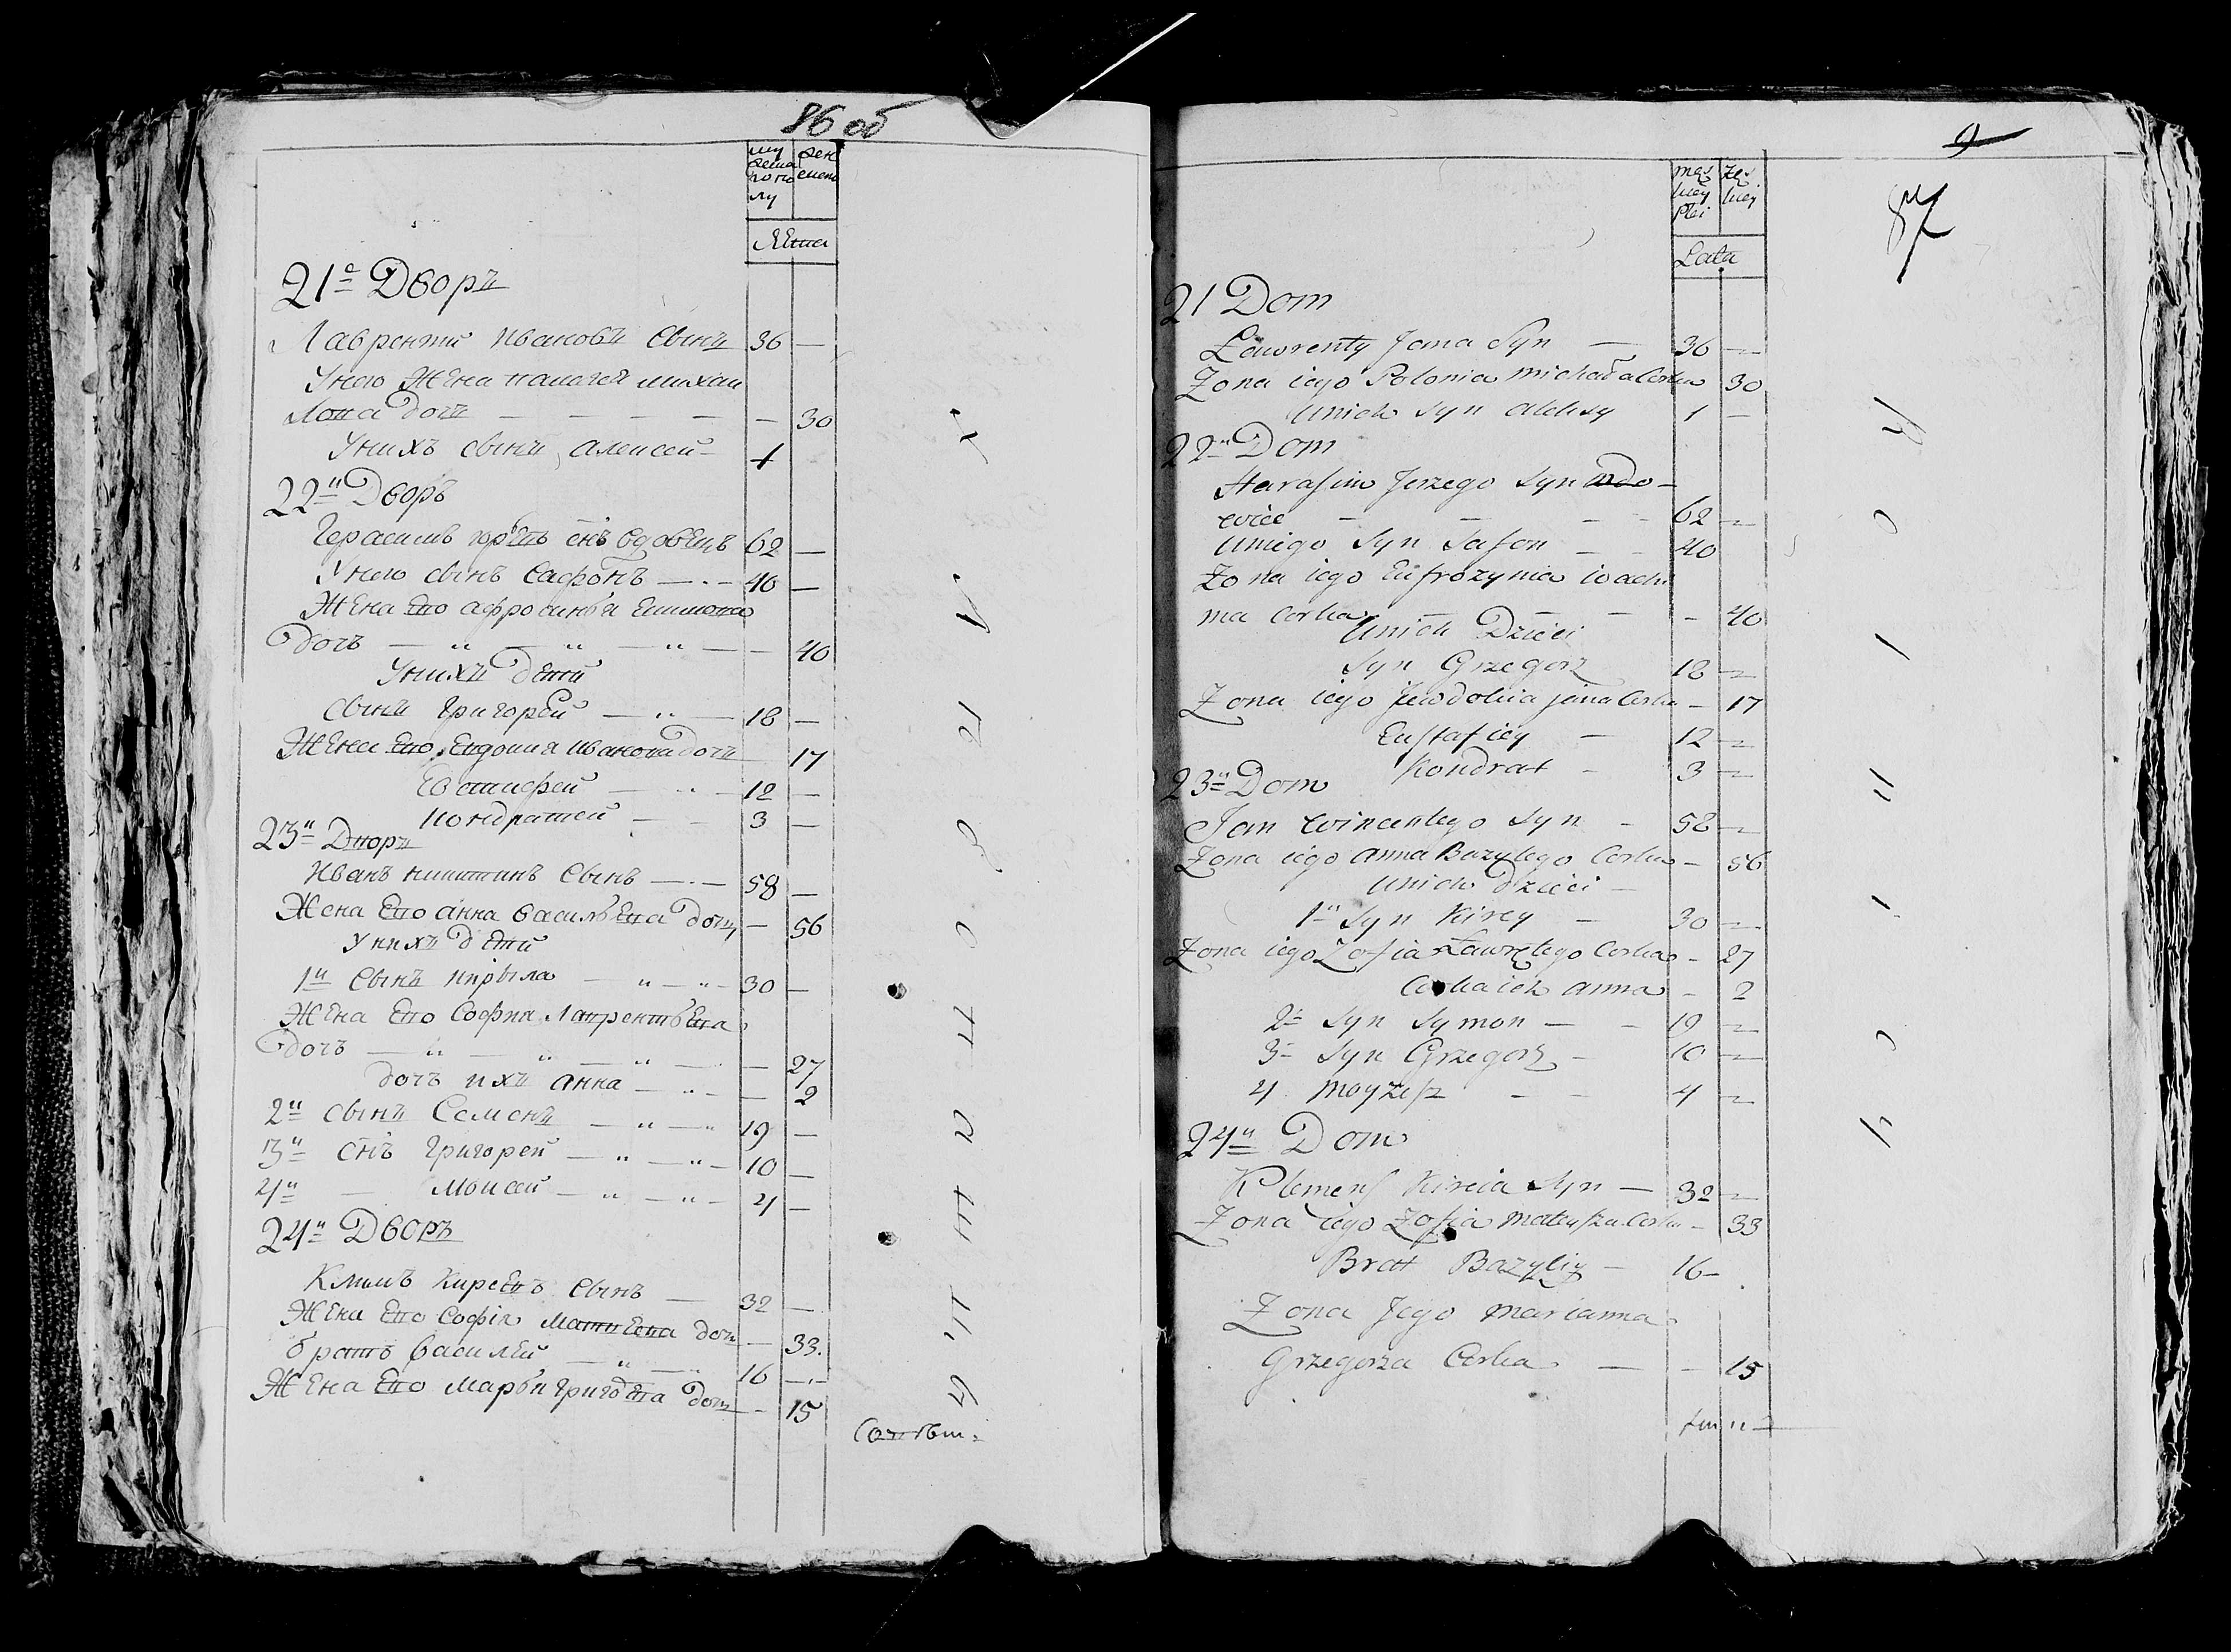 86 об
му
жеска
го по
лу
жен
скаго
Лѣта
21й Дворъ
Лаврентій Ивановъ Сынъ 36 —
У него Жена палагея михаи
лова дочъ — — — — — 30
У нихъ сынъ алексей 1
22й Дворъ
Герасимъ юрьевъ снъ вдовецъ 62 —
У него сынъ Сафонъ — 40 —
Жена Ево афросинья Екимова
дочъ — — — — 40
У нихъ дѣтей
Сынъ Григорей — 18 —
Жена Ево Евдокия ивановадочъ 17
Евстафей — 12 —
Кондратей — 3 —
23й Дворъ
Иванъ никитинъ Сынъ — 58 —
Жена Ево анна васильева дочъ — 56
У нихъ дѣтей
1й Сынъ кирыла — 30 —
Жена Ево София Лаврентьева
дочъ — — — — 27
дочъ ихъ анна — — 2
2й сынъ Семенъ — 19 —
3й снъ Григорей — 10 —
4й — Моисей — 4 —
24й Дворъ
Климъ Киреевъ Сынъ — 32 —
Жена Ево Софія Матвеева дочъ — 33.
братъ василей — 16 —
Жена Ево марья григорева дочъ — 15
9
87
męs
kiey
płci
żęs
kiey
Lata
21 Dom
Lawrenty Jana Syn — 36 —
Zona iego Polonia michała Corka 30
Unich syn alexsy 1 —
22й Dom
Harasim Jerzego syn wdo-
wiec — — — 62 —
Uniego syn Safon — 40
Zona iego Eufrozynia ioachi
ma corka — — — 40
Unich Dzieci
Syn Grzegorz 18 —
Zona iego Jewdokia jana Corka — 17
Eustafiey — 12 —
Kondrat — 3 —
23й Dom
Jan wincentego syn — 58 —
Zona iego anna Bazylego Corka — 56
Unich dzieci —
1й syn Kirey — 30 —
Zona iego Zofia Lawrętego Corka — 27
Corka ich anna — 2
2й syn symon — — 19 —
3й syn Grzegorz — 10 —
4 moyżesz — — 4 —
24й Dom
Klemens Kireia syn — 32 —
Zona iego Zofia mateusza Corka — 33
Brat Bazyliy — 16 —
Zona Jego marianna
Grzegorza Corka — — 15